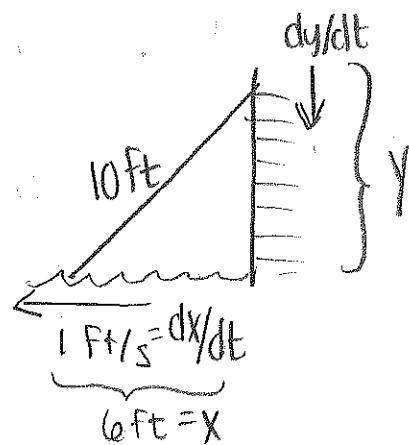 dy/dt
10ft
Y
1 ft/s = dx/dt
6ft = x